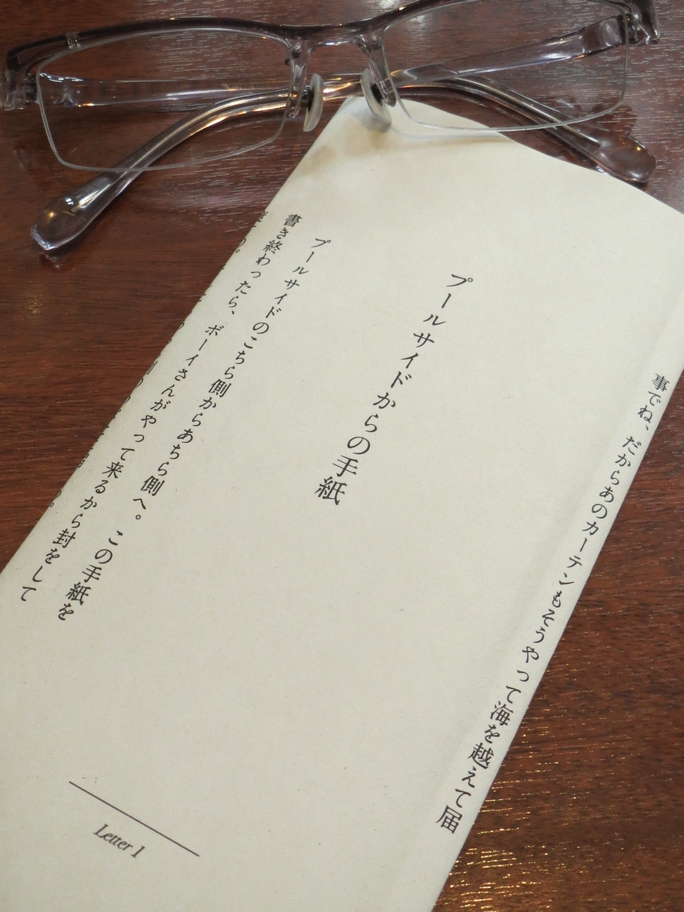 事でね、だからあのカーテンもそうやって海を越えて届
プールサイドからの手紙
プールサイドのこちら側からあちら側へ。この手紙を
書き終わったら、ボーイさんがやって来るから封をして
Letter 1